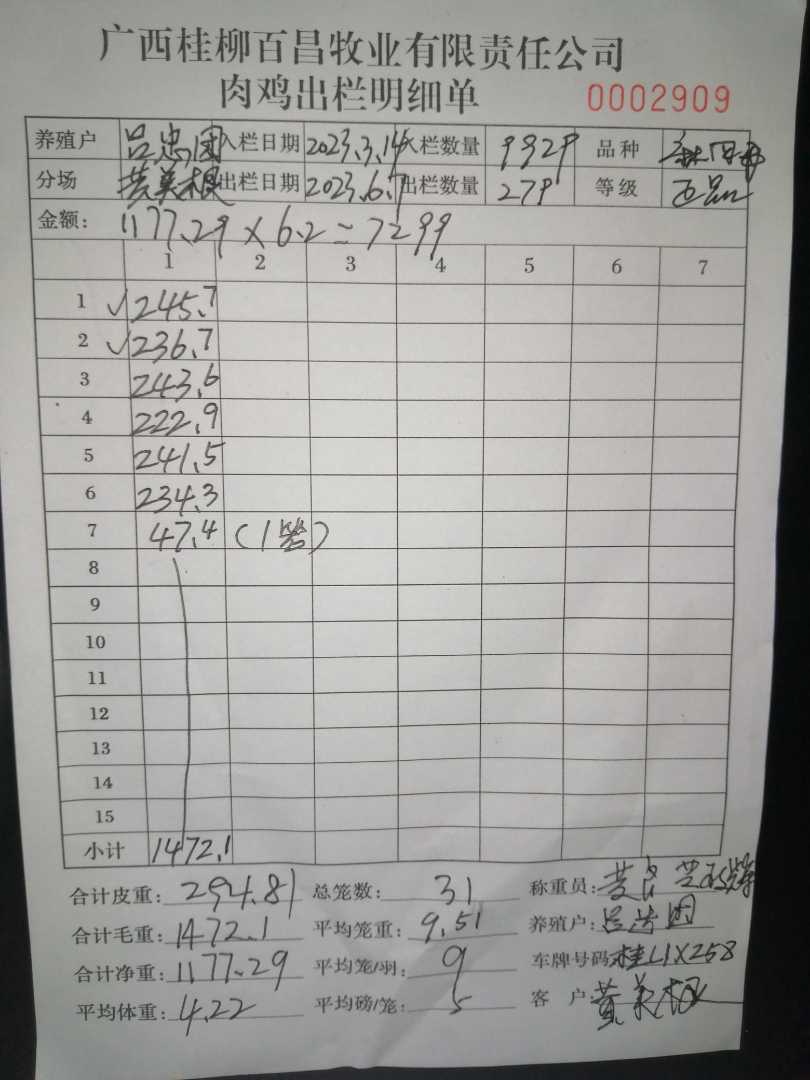 广西桂柳百昌牧业有限责任公司
肉鸡出栏明细单 0002909
养殖户 吕忠团 入栏日期 2023.3.14 入栏数量 9929 品种
分场 黄美根 出栏日期 2023.6.7 出栏数量 279 等级
金额: 1177.29 × 6.2 = 7299
1 2 3 4 5 6 7
1 ✓245.7
2 ✓236.7
3 243.6
4 222.9
5 241.5
6 234.3
7 47.4 (1笼)
8
9
10
11
12
13
14
15
小计 1472.1
合计皮重: 294.81 总笼数: 31 称重员:
合计毛重: 1472.1 平均笼重: 9.51 养殖户:
合计净重: 1177.29 平均笼/羽: 9 车牌号码: 桂L1X258
平均体重: 4.22 平均磅/笼: 5 客 户: 黄美根